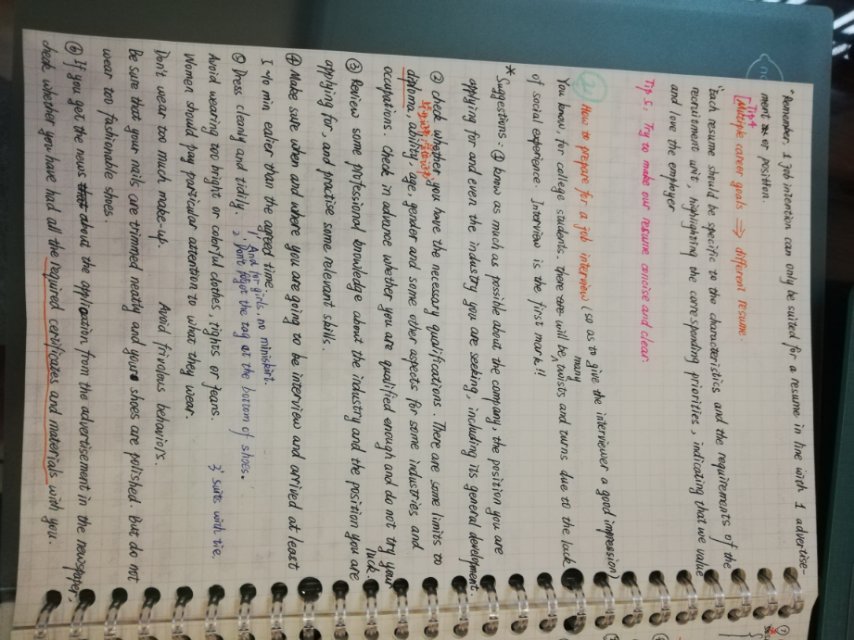 "Remember, 1 job intention can only be suited for a resume in line with 1 advertise-
ment or position.
Tip 4
[Multiple career goals ⇒ different resume.
"Each resume should be specific to the characteristics and the requirements of the
recruitment unit, highlighting the corresponding priorities, indicating that we value
and love the employer
Tip 5: Try to make our resume concise and clear.
② How to prepare for a job interview (so as to give the interviewer a good impression)
You know, for college students, there will be many twists and turns due to the luck
of social experience. Interview is the first mark!!
* Suggestions: ① know as much as possible about the company, the position you are
applying for and even the industry you are seeking, including its general development.
② check whether you have the necessary qualifications. There are some limits to
diploma, ability, age, gender and some other aspects for some industries and
occupations. Check in advance whether you are qualified enough and do not try your
luck.
③ Review some professional knowledge about the industry and the position you are
applying for, and practise some relevant skills.
④ Make sure when and where you are going to be interview and arrived at least
10 min ealier than the agreed time.
1. And for girls, no miniskirt.
⑤ Dress cleanly and tidily. 2. Don't forget the tag at the bottom of shoes.
Avoid wearing too bright or colorful clothes, tights or jeans. 3° suits with tie.
Women should pay particular attention to what they wear.
Don't wear too much make-up. Avoid frivolous behaviors.
Be sure that your nails are trimmed neatly and your shoes are polished. But do not
wear too fashionable shoes.
⑥ If you got the news about the application from the advertisement in the newspaper,
check whether you have had all the required certificates and materials with you.